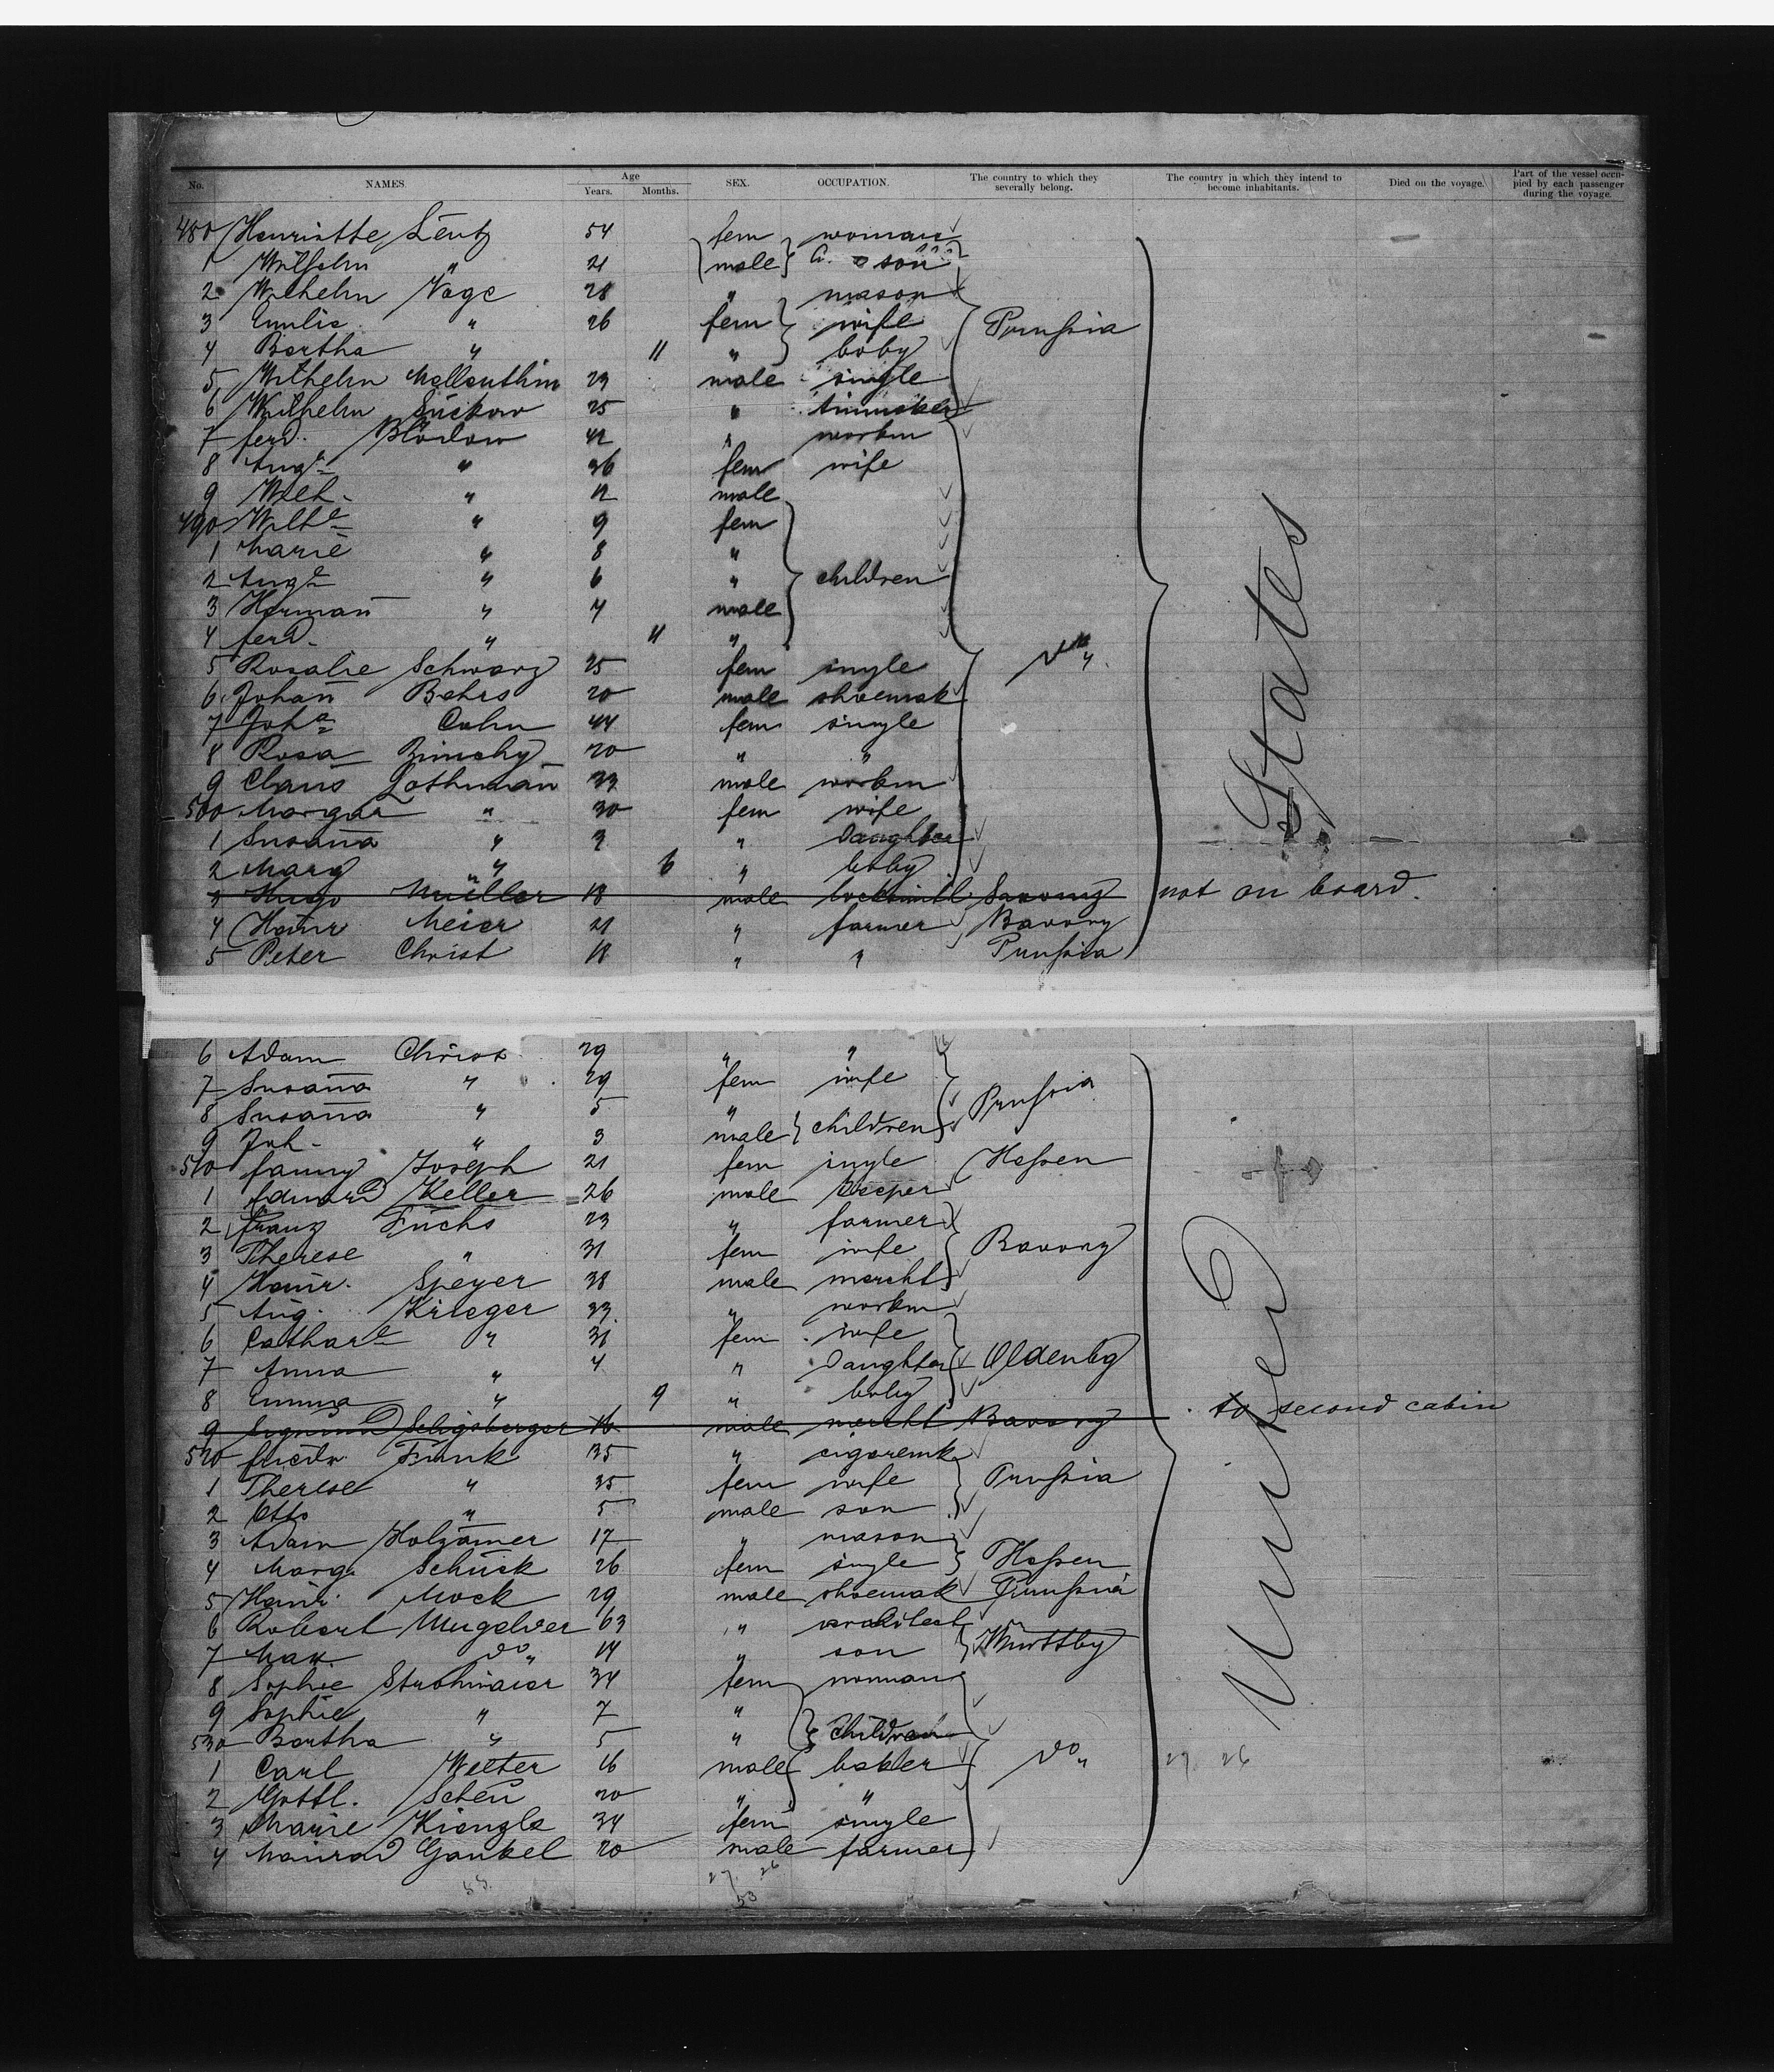 No. NAMES. Age Years. Months. SEX. OCCUPATION. The country to which they severally belong. The country in which they intend to become inhabitants. Died on the voyage. Part of the vessel occupied by each passenger during the voyage.
480 Henriette Lentz 54 fem woman
1 Wilhelm " 21 male son
2 Wilhelm Voge 28 " mason
3 Emilie " 26 fem wife Prussia
4 Bertha " 11 " baby
5 Wilhelm Mellenthin 23 male single
6 Wilhelm Suckow 25 "
7 ferd. Blödow 42 " workm
8 Auge " 36 fem wife
9 Wilh. " 12 male
490 Wilhe " 9 fem
1 Marie " 8 "
2 Auge " 6 " children
3 Herman̄ " 4 male
4 ferd. " 11 "
5 Rosalie Schwarz 25 fem single do "
6 Johan̄ Behrs 20 male shoemak
7 Joha Cohn 44 fem single
8 Rosa 20 " "
9 Claus Lothman̄ 33 male workm
500 Margar " 30 fem wife
1 Susan̄a " 3 " Daughter
2 Marg " 6 " baby
3 Hugo Müller 18 male locksmith not on board.
4 Heinr Meier 21 " farmer Bavory
5 Peter Christ 18 " " Prussia
States
6 Adam Christ 29 " "
7 Susan̄a " 29 fem wife Prussia
8 Susan̄a " 5 " children
9 Joh. " 3 male
510 fanny Joseph 21 fem single Hessen
1 Edward Keller 26 male
2 franz Fuchs 23 " farmer
3 Therese " 31 fem wife Bavory
4 Heinr. Speyer 38 male mercht
5 Aug. Krieger 33. " workm
6 Cathare " 31 fem wife
7 Anna " 4 " Daughter Oldenbg
8 Emma " 9 " baby
9 Sigmund Seligsberger 16 male mercht Bavory to second cabin
520 friedr. Funk 35 " cigaremk
1 Therese " 35 fem wife Prussia
2 Otto " 5 male son
3 Adam Holzamer 17 " mason
4 Marg. Schuck 26 fem single Hessen
5 Heinr. Mock 29 male shoemak Prussia
6 Robert 63 " architect
7 Max do " 14 " son Wurttbg
8 Sophie Strohmaier 34 fem woman
9 Sophie " 7 "
530 Bertha " 5 " children
1 Carl Welter 16 male baker do " 27 26
2 Gottl. Scheu 20 " "
3 Marie Kiengle 34 fem single
4 Gankel 20 male farmer
United
27 26
53